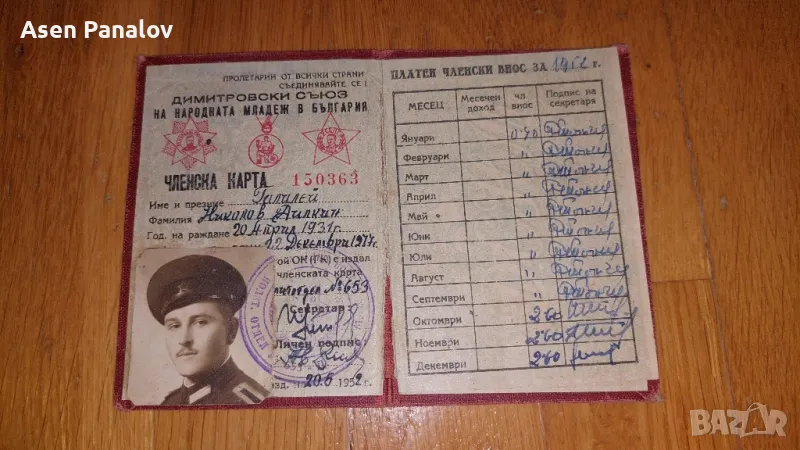 Asen Panalov
ПРОЛЕТАРИИ ОТ ВСИЧКИ СТРАНИ
СЪЕДИНЯВАЙТЕ СЕ!
ДИМИТРОВСКИ СЪЮЗ
НА НАРОДНАТА МЛАДЕЖ В БЪЛГАРИЯ
ЧЛЕНСКА КАРТА 150363
Име и презиме Галилей
Фамилия Николов
Год. на раждане 20 Април 1931 г.
12 Декември 1947 г.
ой ОК (ГК) е издал
членската карта
№ 653
Секретар:
Личен подпис:
20.6 1952 г.
ПЛАТЕН ЧЛЕНСКИ ВНОС ЗА 1952 г.
МЕСЕЦ Месечен доход чл. внос Подпис на секретаря
Януари 0.40
Февруари "
Март "
Април "
Май "
Юни "
Юли "
Август "
Септември "
Октомври 2.60
Ноември 2.60
Декември 2.60
BAZAR